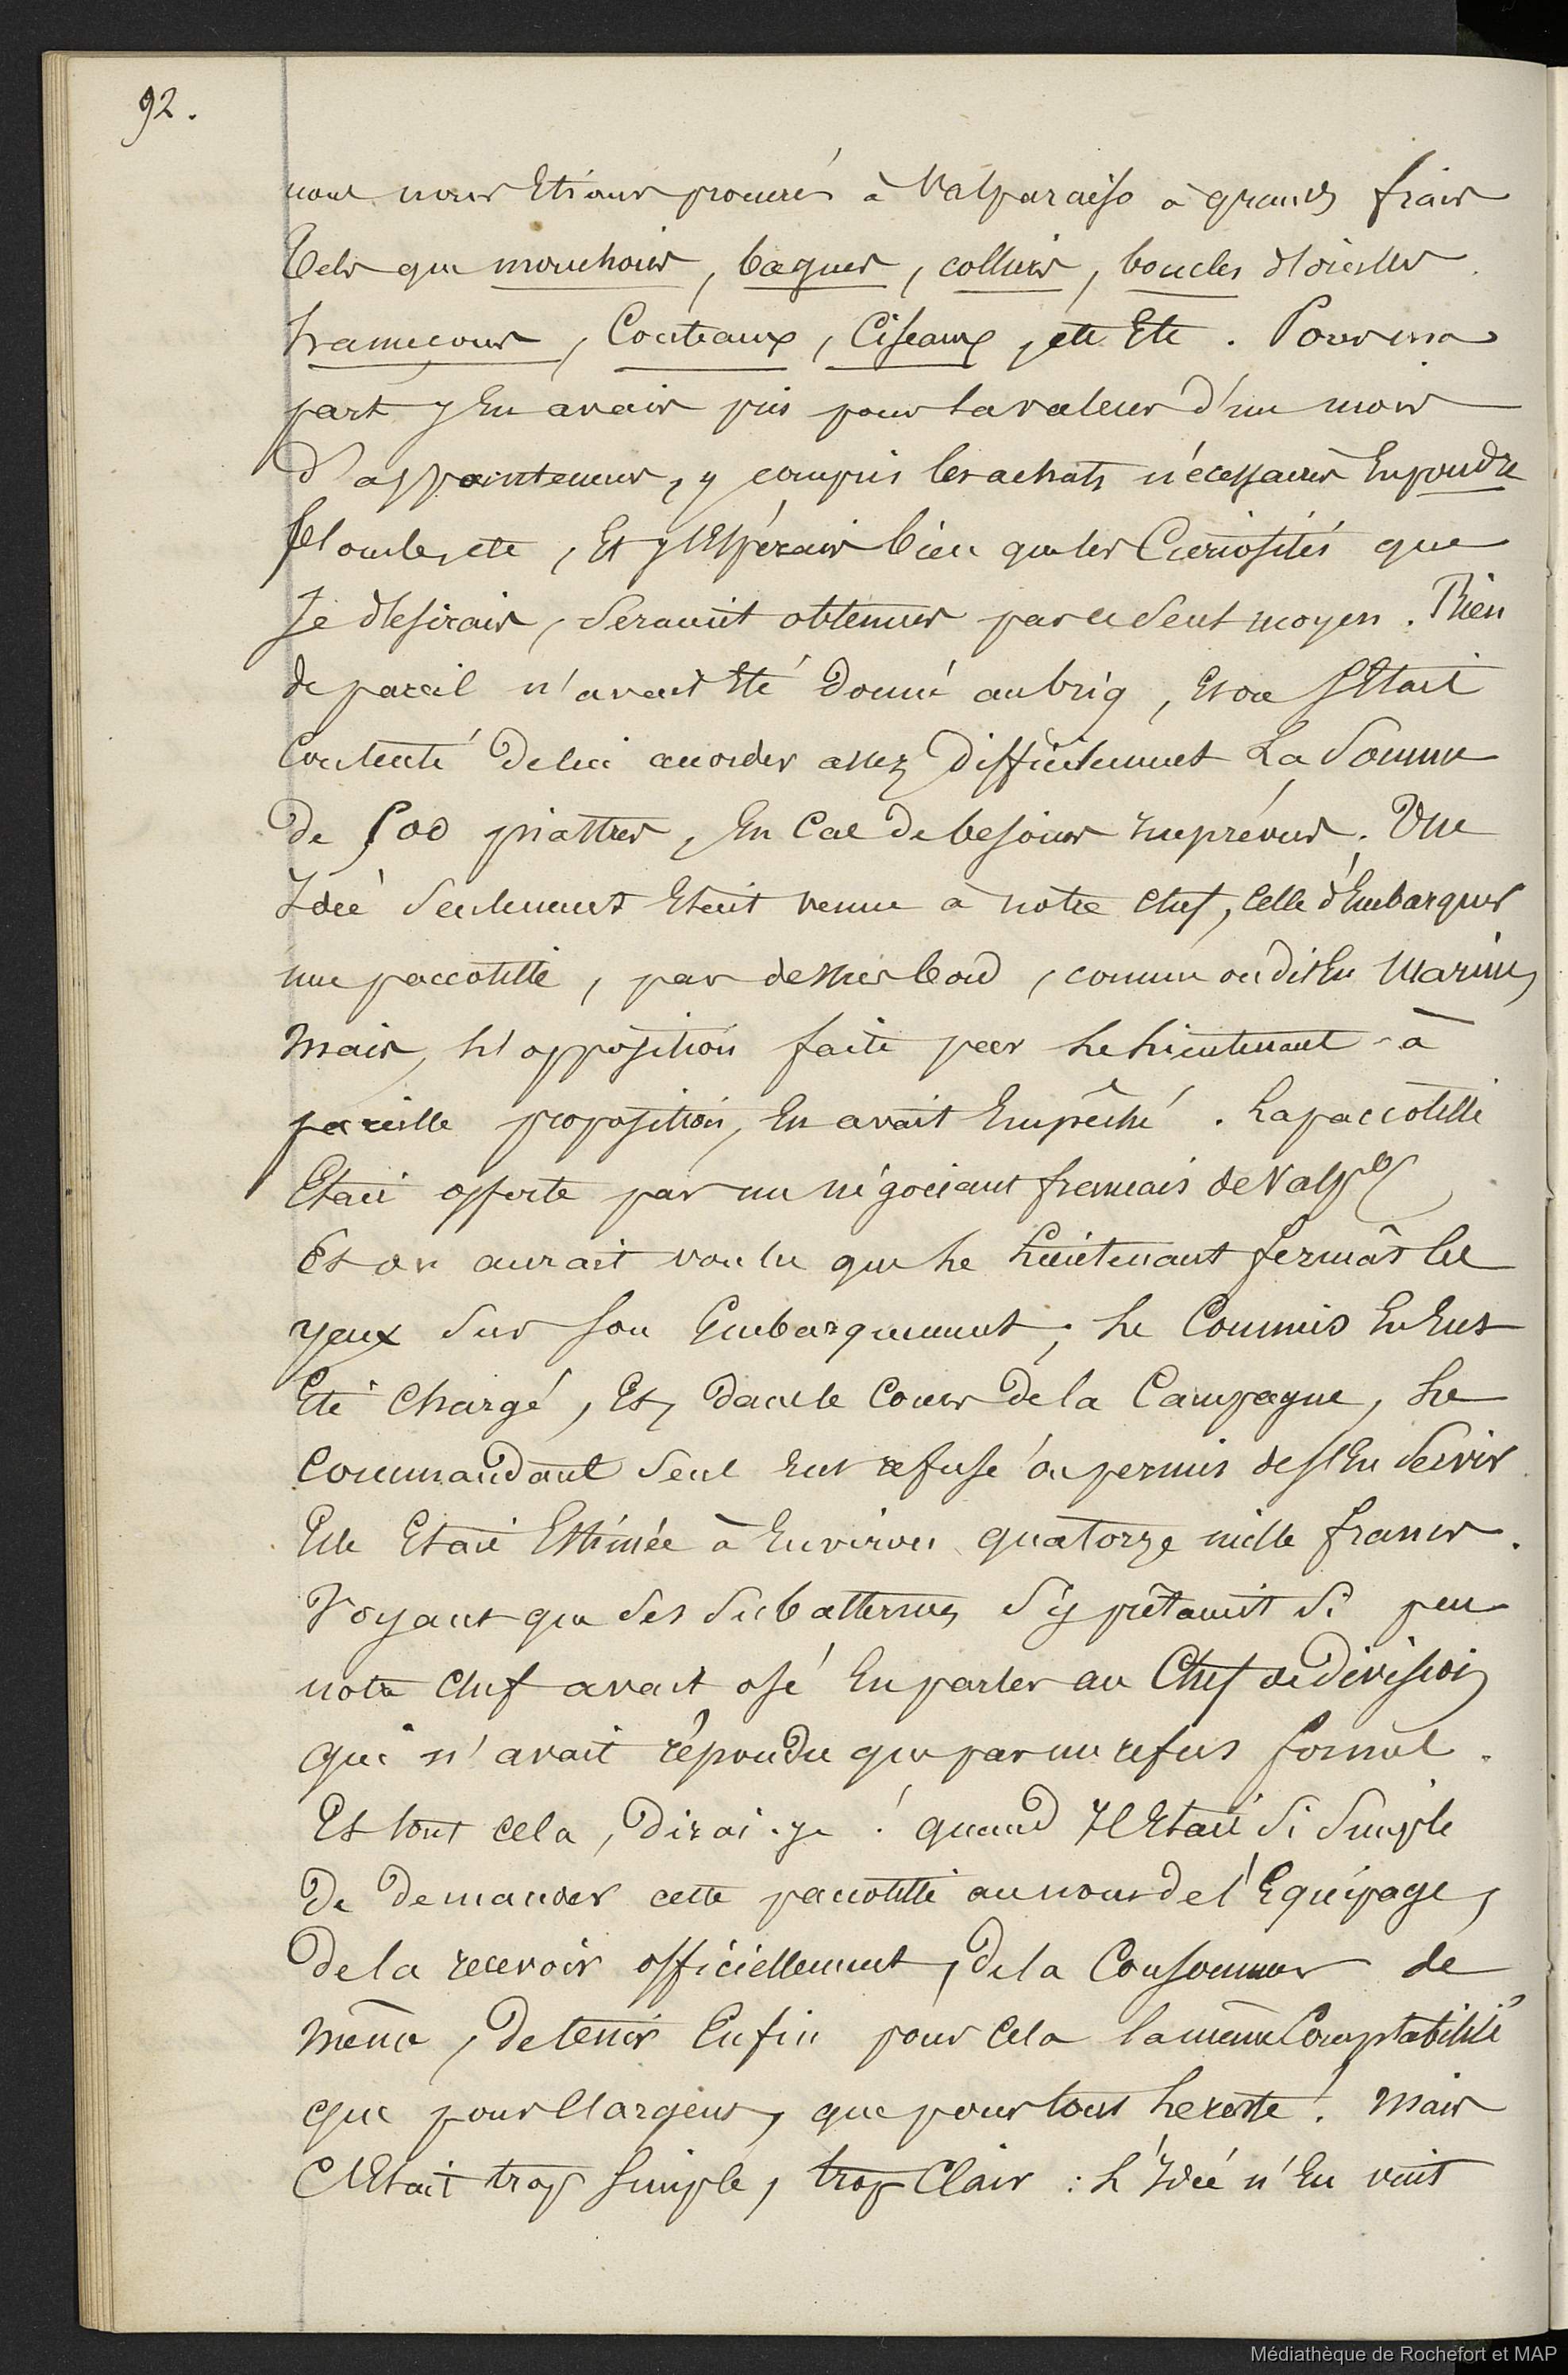 92.
nous nous Etions procurés à Valparaiso à grands frais
Tels que mouchoirs, bagues, colliers, boucles d'oreilles
hameçons, Couteaux, Ciseaux, ett Etc. Pour ma
part j'En avais pris pour la valeur d'un mois
d'appointemens, y compris les achats nécessaires En poudre
plomb, etc, Et j'Espérais bien que les Curiosités que
Je desirais, Seraient obtenues par ce Seul moyen. Rien
de pareil n'avait Eté donné au brig, Et on s'Etait
Contenté de lui accorder assez difficilement La Somme
de 500 piastres, En Cas de besoins Imprévus. Une
Idée Seulement Etait venue à notre Chef, Celle d'Embarquer
une paccotille, par dessus bord, comme on dit En Marine,
Mais, L'opposition faite par Le Lieutenant à
pareille proposition, En avait Empêché. La paccotille
Etait offerte par un négociant français de Valp°
Et on aurait voulu que Le Lieutenant fermât les
yeux Sur Son Embarquement; Le Commis En Eut
Eté Chargé, Et, dans le Cours de la Campagne, Le
Commandant Seul Eut refusé ou permis de s'En Servir
Elle Etait Estimée à Environ quatorze mille francs.
Voyant que Ses Subalternes S'y prêtaient Si peu
notre Chef avait osé En parler au Chef de Division
qui n'avait répondu que par un refus formel.
Et tout cela, Dirai-je! quand Il Etait Si Simple
De Demander cette paccotille au nom de l'Equipage,
De la recevoir officiellement, de la Consommer de
même, De tenir Enfin pour Cela la même Comptabilité
que pour l'argent, que pour tout Le reste! Mais
C'Etait trop Simple, trop Clair : L'Idée n'En vint
Médiathèque de Rochefort et MAP